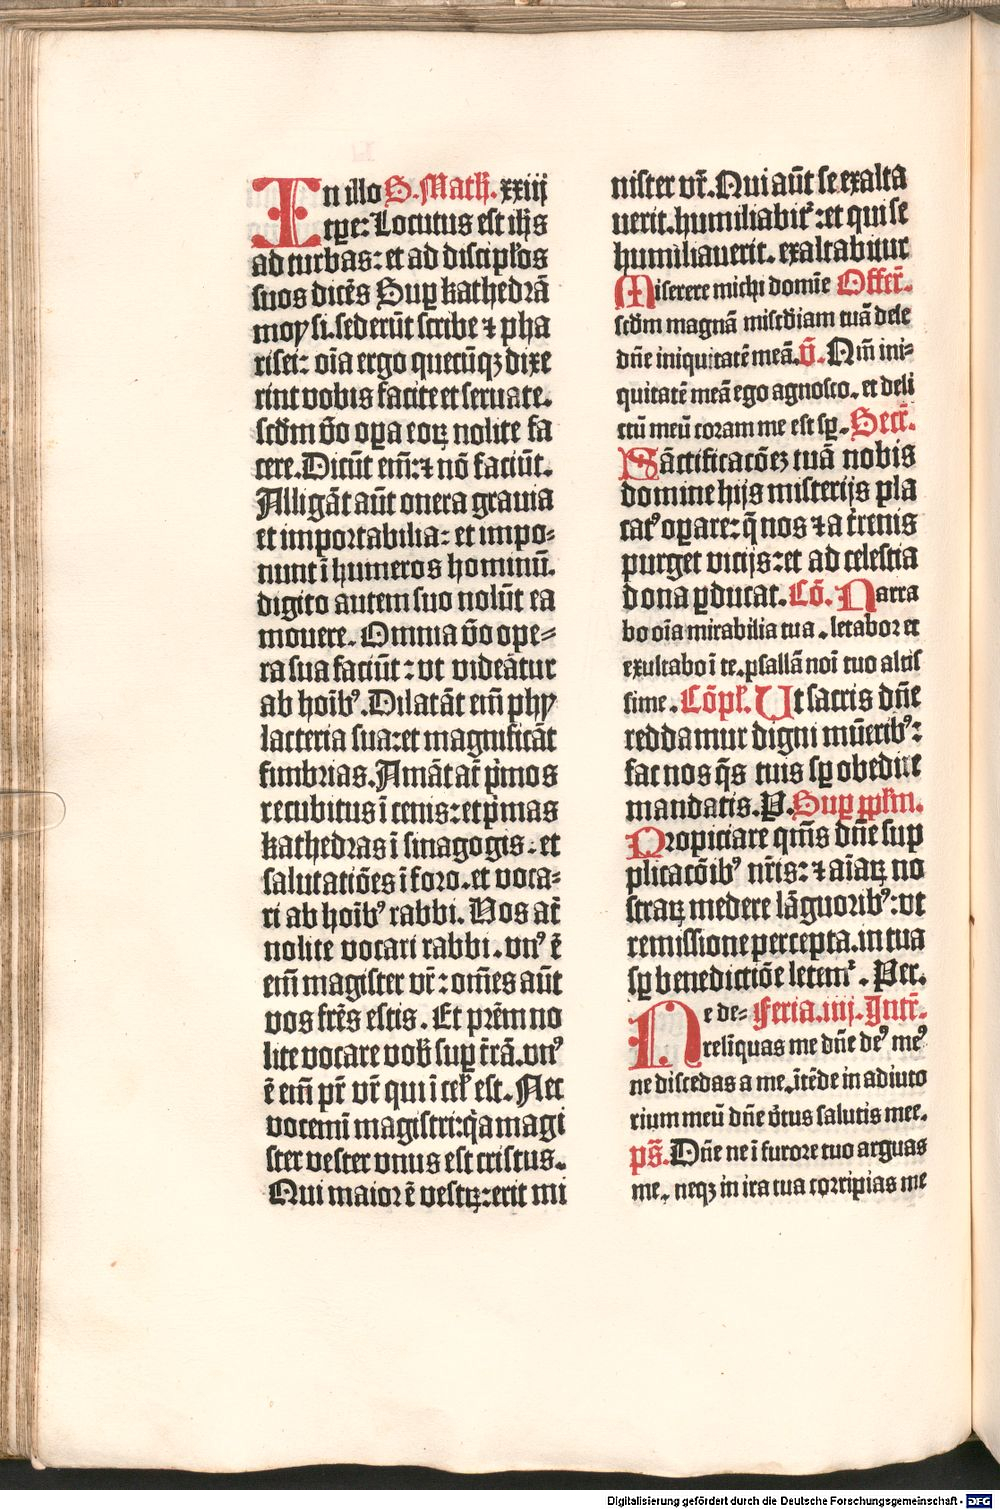 In illo S. Math. xxiij
tꝑe: Locutus est ihs
ad turbas: et ad discipƚos
suos dicēs Suꝑ kathedrā
moysi. sederūt scribe ⁊ pha
risei: oīa ergo quecūqꝫ dixe
rint vobis facite et seruate.
scḋm v̄o oꝑa eoꝝ nolite fa
cere. Dicūt eīm: ⁊ nō faciūt.
Alligāt aūt onera grauia
et importabilia: et impo⸗
nunt ī humeros hominū.
digito autem suo nolūt ea
mouere. Omnia v̄o ope⸗
ra sua faciūt: vt videātur
ab hoībꝰ. Dilatāt eīm phy
lacteria sua: et magnificāt
fimbrias. Amāt at̄ pͥmos
recubitus ī cenis: et pͥmas
kathedras ī sinagogis. et
salutatiōes ī foro. et voca⸗
ri ab hoībꝰ rabbi. Vos at̄
nolite vocari rabbi. vnꝰ ē
eīm magister vr̄: om̄es aūt
vos fr̄es estis. Et pr̄em no
lite vocare vob̄ suꝑ t̄rā. vnꝰ
ē eīm pr̄ vr̄ qui ī celꝭ est. Nec
vocemī magistri: qͥa magi
ster vester vnus est cristus.
Qui maior ē vestꝝ: erit mi
nister vr̄. Qui aūt se exalta
uerit. humiliabitᷣ: et qui se
humiliauerit. exaltabitur
Miserere michi domīe Offer̄.
scḋm magnā miscḋiam tuā dele
dn̄e iniquitatē meā. v̄. Qm̄ ini⸗
quitatē meā ego agnosco. et deli
ctū meū coram me est sꝑ. Secr̄.
Sāctificacōeꝫ tuā nobis
domine hijs misterijs pla
catꝰ oꝑare: q̄ nos ⁊ a t̄renis
purget vicijs: et ad celestia
dona ꝑducat. Cō. Narra
bo oīa mirabilia tua. letabor et
exultabo ī te. psallā noī tuo altis
sime. Cōpƚ. Ut sacris dn̄e
reddamur digni mūeribꝰ:
fac nos q̄s tuis sꝑ obedire
mandatis. P. Suꝑ pplm̄.
Propiciare qm̄s dn̄e sup
plicacōibꝰ nr̄is: ⁊ aīaꝝ no
straꝝ medere lāguoribꝰ: vt
remissione percepta. in tua
sꝑ benedictiōe letemᷣ. Per.
Ne de⸗ Feria. iiij. Intr̄.
relīquas me dn̄e deꝰ meꝰ
ne discedas a me. ītēde in adiuto
rium meū dn̄e v̓tus salutis mee.
ps̄. Dn̄e ne ī furore tuo arguas
me. neqꝫ in ira tua corripias me
Digitalisierung gefördert durch die Deutsche Forschungsgemeinschaft - DFG